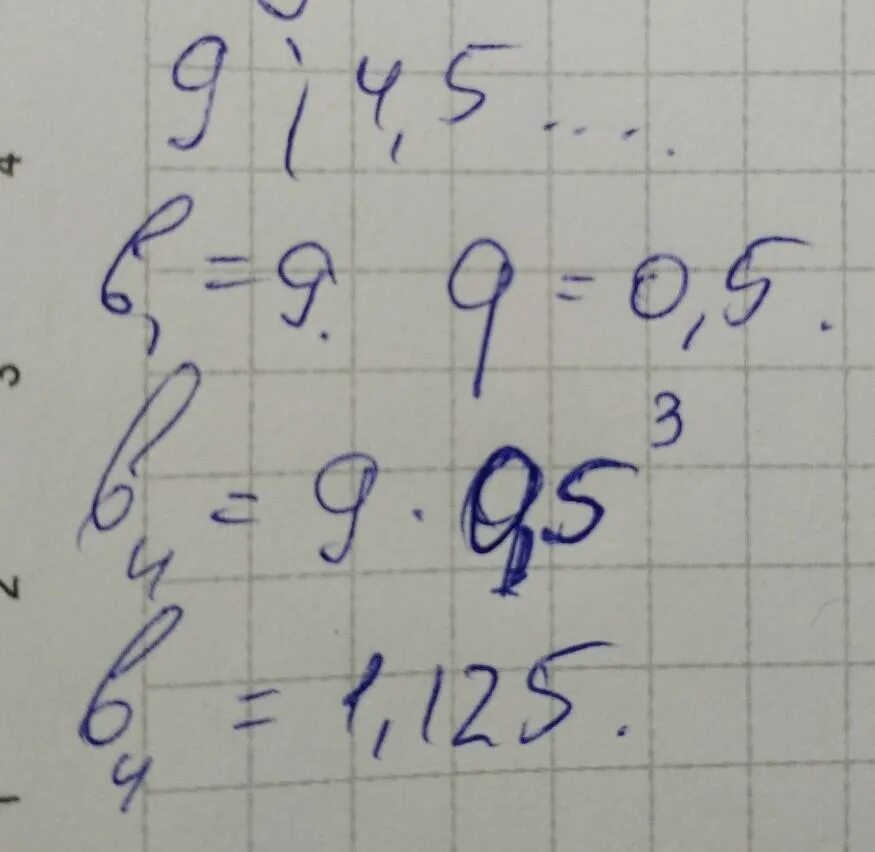 9; 4,5 ....
b₁ = 9. q = 0,5.
b₄ = 9 · 0,5³
b₄ = 1,125.